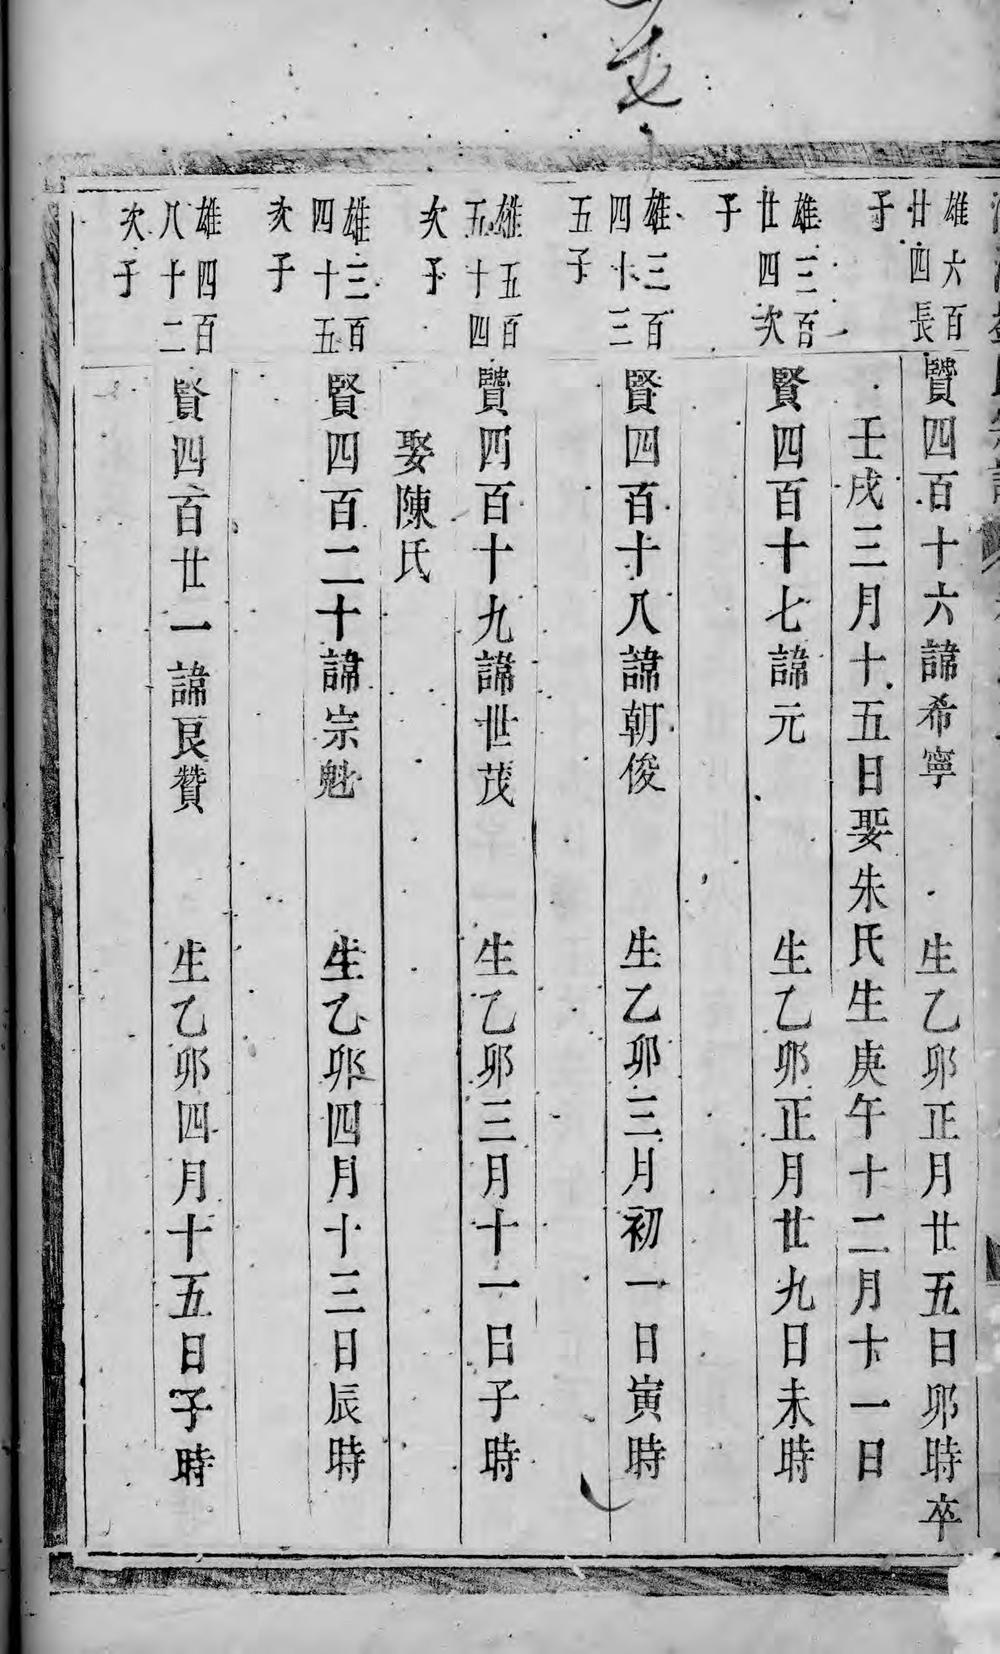 雄六百
廿四長
子
賢四百十六諱希寧 生乙卯正月廿五日卯時卒
壬戌三月十五日娶朱氏生庚午十二月十一日
雄三百
廿四次
子
賢四百十七諱元 生乙卯正月廿九日未時
雄三百
四十三
五子
賢四百十八諱朝俊 生乙卯三月初一日寅時
雄五百
五十四
次子
賢四百十九諱世茂 生乙卯三月十一日子時
娶陳氏
雄三百
四十五
次子
賢四百二十諱宗魁 生乙卯四月十三日辰時
雄四百
八十二
次子
賢四百廿一諱良贊 生乙卯四月十五日子時